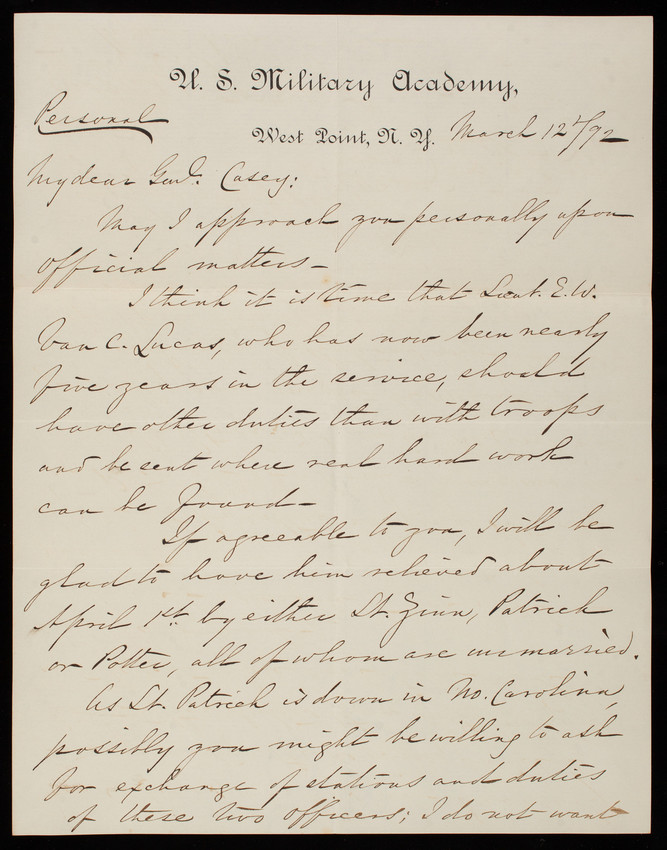 U. S. Military Academy,
Personal
West Point, N. Y. March 12th/92
My dear Genl. Casey:
May I approach you personally upon
official matters—
I think it is time that Lieut. E. W.
Van C. Lucas, who has now been nearly
five years in the service, should
have other duties than with troops
and be sent where real hard work
can be found—
If agreeable to you, I will be
glad to have him relieved about
April 1st. by either Lt. Zinn, Patrick
or Potter, all of whom are unmarried.
As Lt. Patrick is down in No. Carolina,
possibly you might be willing to ask
for exchange of stations and duties
of these two officers; I do not want